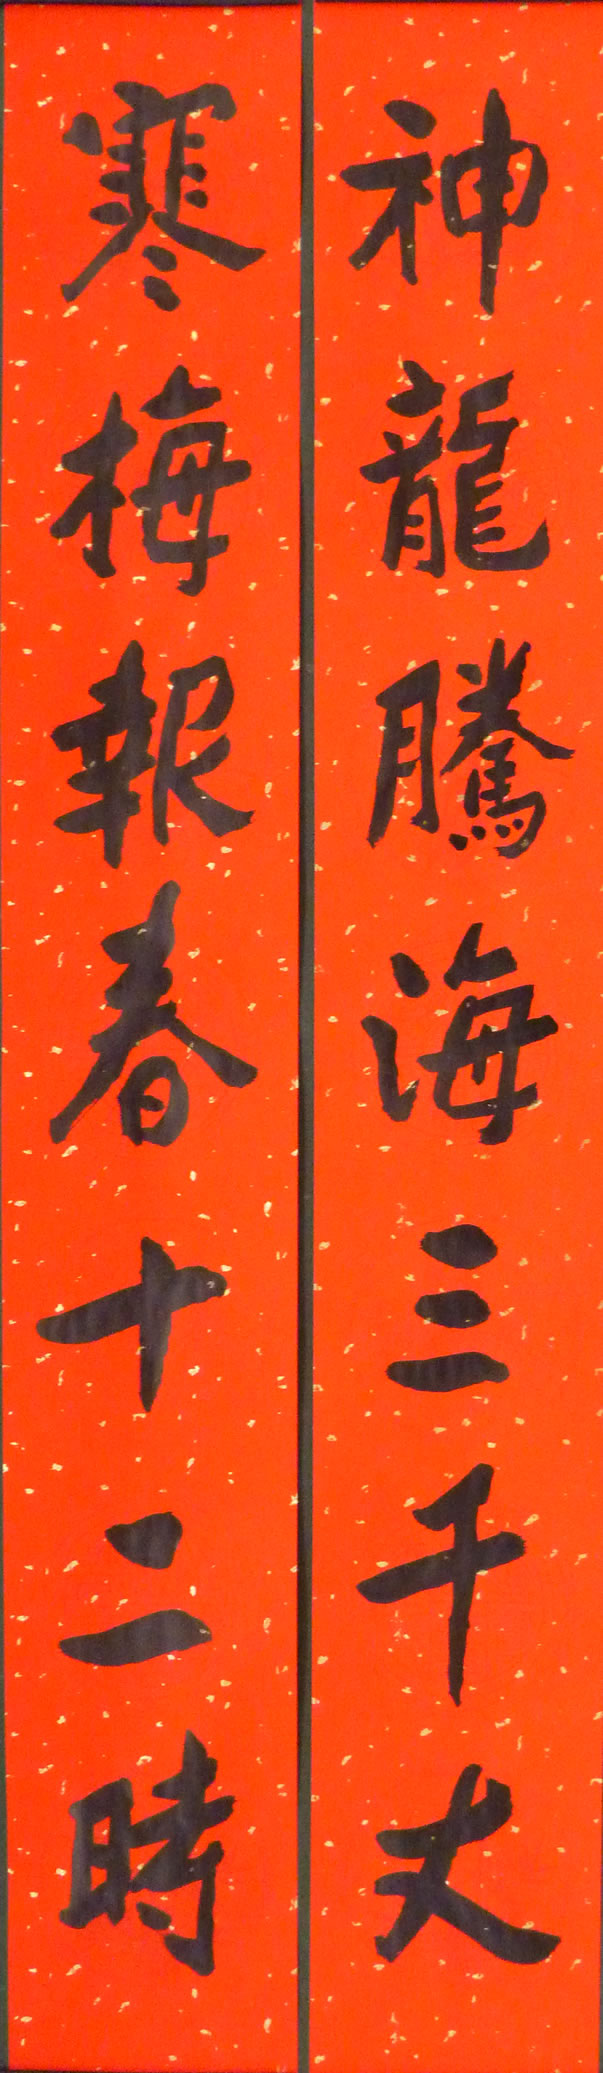 神龍騰海三千丈
寒梅報春十二時